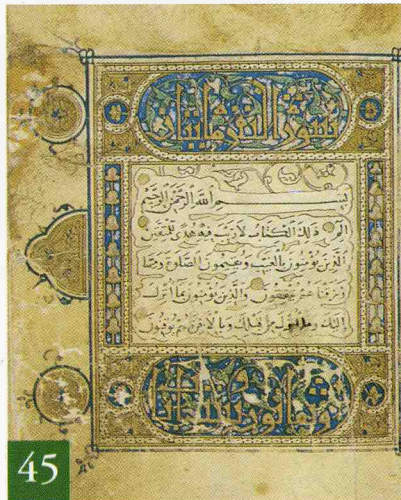 سورة البقرة مايتان
بسم الله الرحمن الرحيم
الم ذلك الكتاب لا ريب فيه هدى للمتقين
الذين يؤمنون بالغيب ويقيمون الصلوة ومما
رزقنهم ينفقون والذين يؤمنون بما انزل
اليك وما انزل من قبلك وبالاخرة هم يوقنون
45